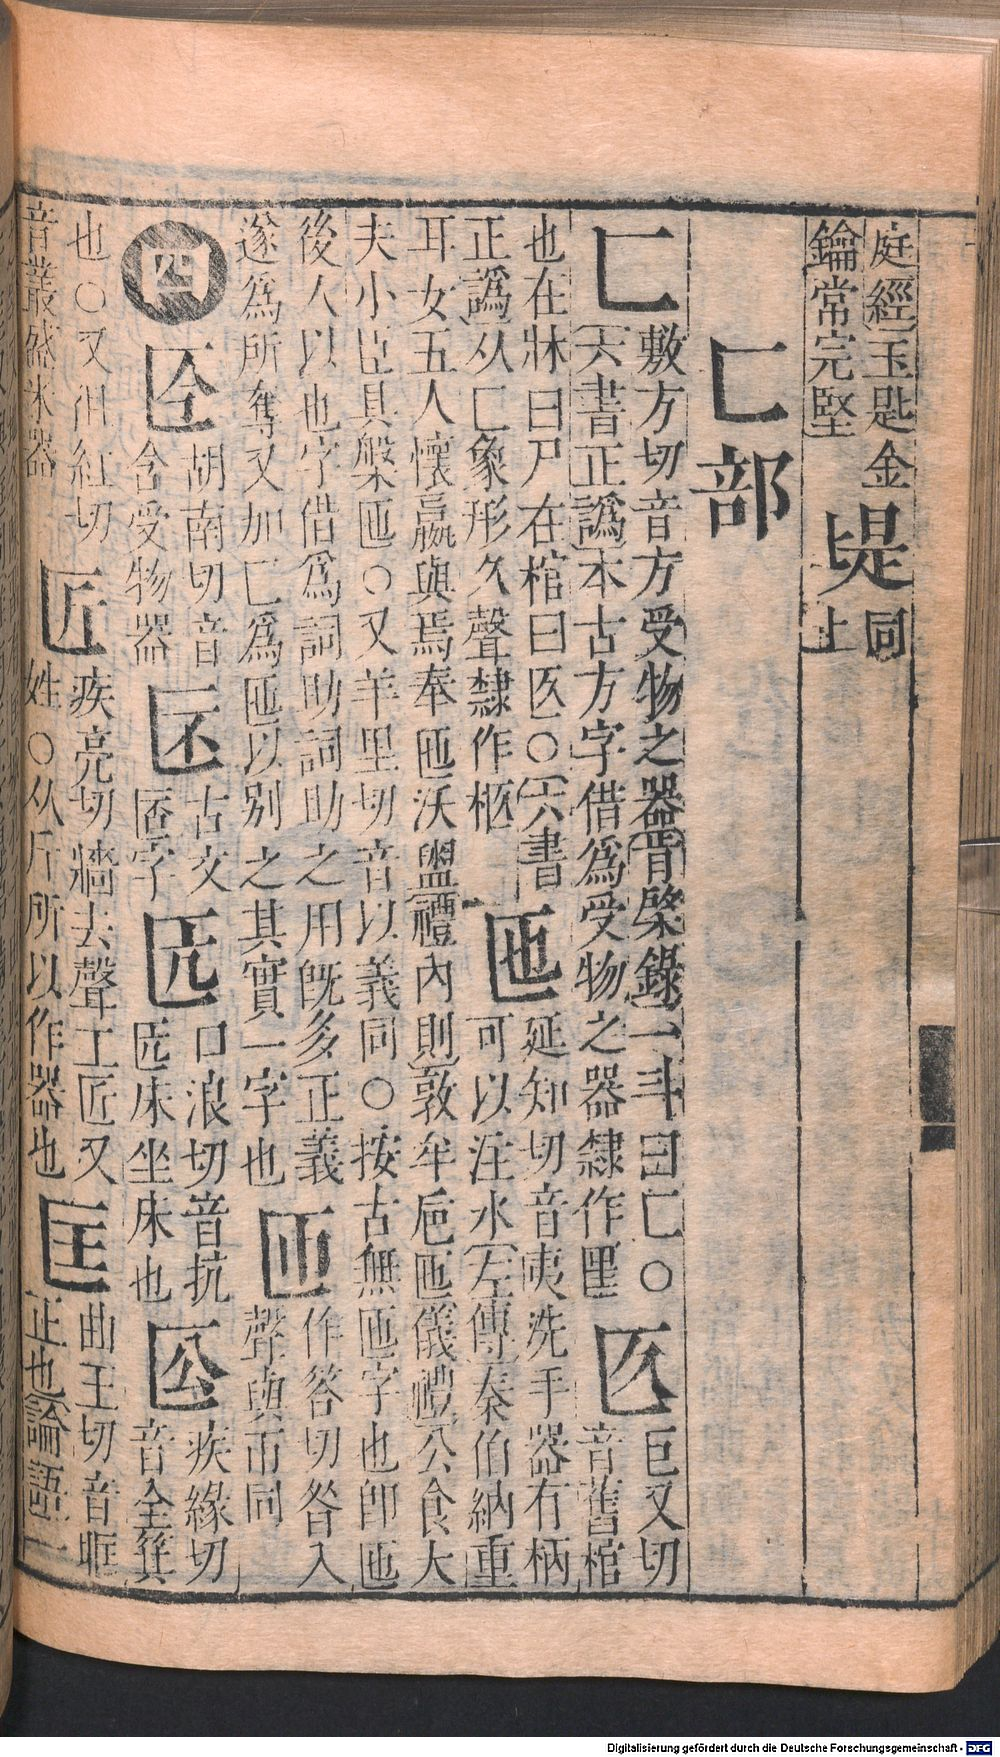 庭經玉匙金
鑰常完堅
𠤭同
上
匚部
匚敷方切音方受物之器肎綮錄一斗曰匚○
六書正譌本古方字借爲受物之器隸作匪
匛巨又切
音舊棺
也在牀曰尸在棺曰匛○六書
正譌从匚象形久聲隸作柩
匜延知切音夷洗手器有柄
可以注水左傳秦伯納重
耳女五人懷嬴與焉奉匜沃盥禮內則敦牟巵匜儀禮公食大
夫小臣具槃匜○又羊里切音以義同○按古無匜字也卽匜
後人以也字借爲詞助詞助之用旣多正義
遂爲所奪又加匚爲匜以別之其實一字也
匝作答切昝入
聲與帀同
四
匼胡南切音
含受物器
匟口浪切音抗
匟床坐床也
疾緣切
音全箕
也○又徂紅切
音叢盛米器
匠疾亮切牆去聲工匠又
姓○从斤所以作器也
匡曲王切音眶
正也論語一
Digitalisierung gefördert durch die Deutsche Forschungsgemeinschaft - DFG